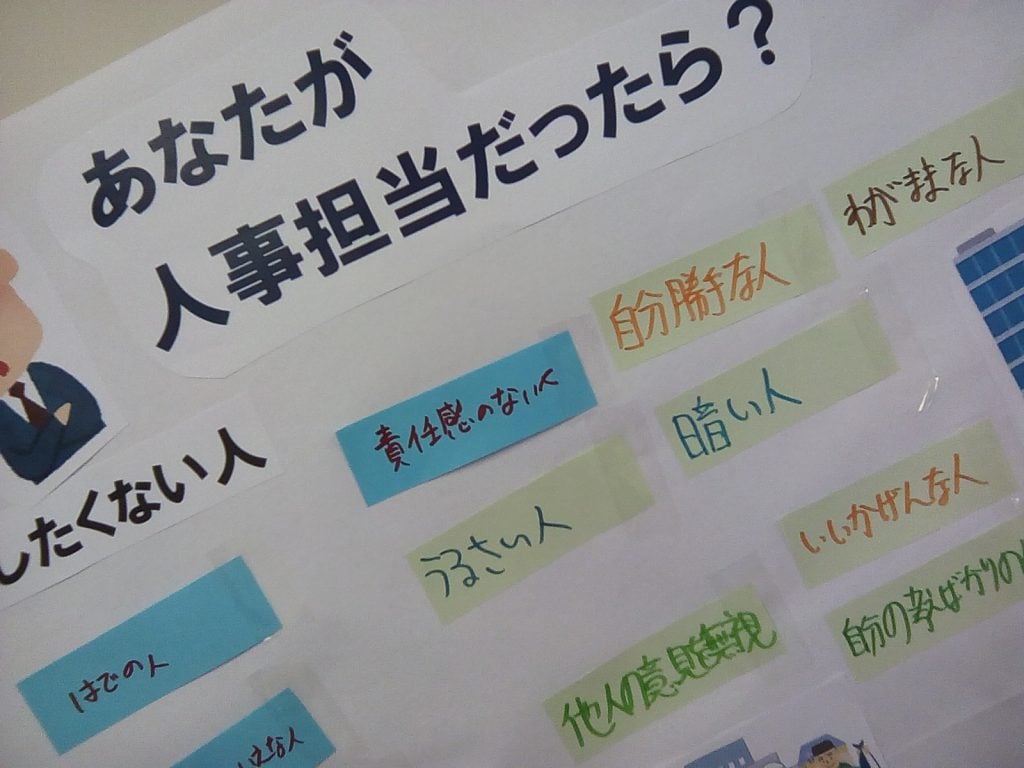 あなたが
人事担当だったら?
わがままな人
自分勝手な人
責任感のない人
暗い人
したくない人
うるさい人
いいかげんな人
はでの人
他人の意見無視
自分の事ばかりの
な人